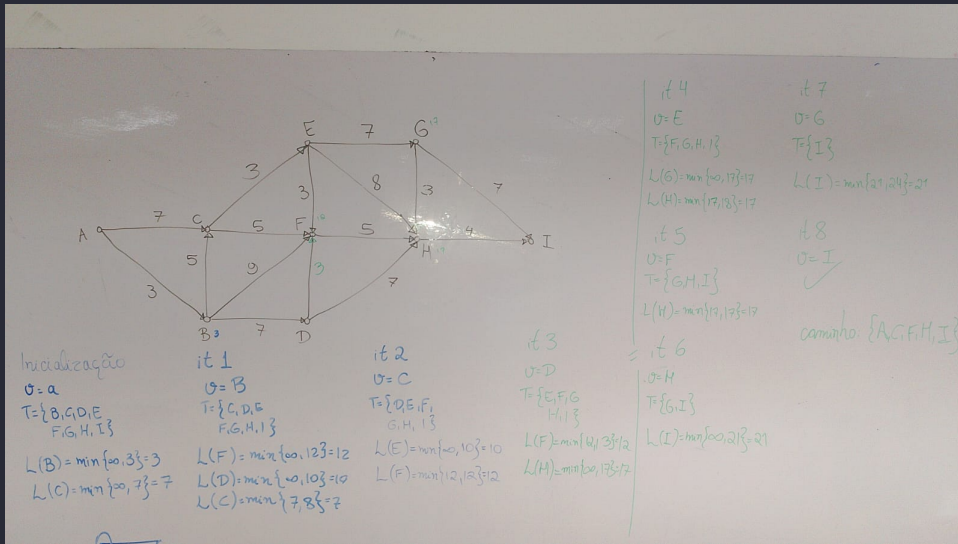 E
7
G 17
3
3
8
3
7
A
7
C
5
F
5
H
4
I
5
9
3
7
3
B 3
7
D
Inicialização
v=a
T={B,C,D,E
F,G,H,I}
L(B)=min{∞,3}=3
L(C)=min{∞,7}=7
it 1
v=B
T={C,D,E
F,G,H,I}
L(F)=min{∞,12}=12
L(D)=min{∞,10}=10
L(C)=min{7,8}=7
it 2
v=C
T={D,E,F,
G,H,I}
L(E)=min{∞,10}=10
L(F)=min{12,12}=12
it 3
v=D
T={E,F,G
H,I}
L(F)=min{12,13}=12
L(H)=min{∞,17}=17
it 4
v=E
T={F,G,H,I}
L(G)=min{∞,17}=17
L(H)=min{17,18}=17
it 5
v=F
T={G,H,I}
L(H)=min{17,17}=17
it 6
v=H
T={G,I}
L(I)=min{∞,21}=21
it 7
v=G
T={I}
L(I)=min{21,24}=21
it 8
v=I
caminho: {A,C,F,H,I}